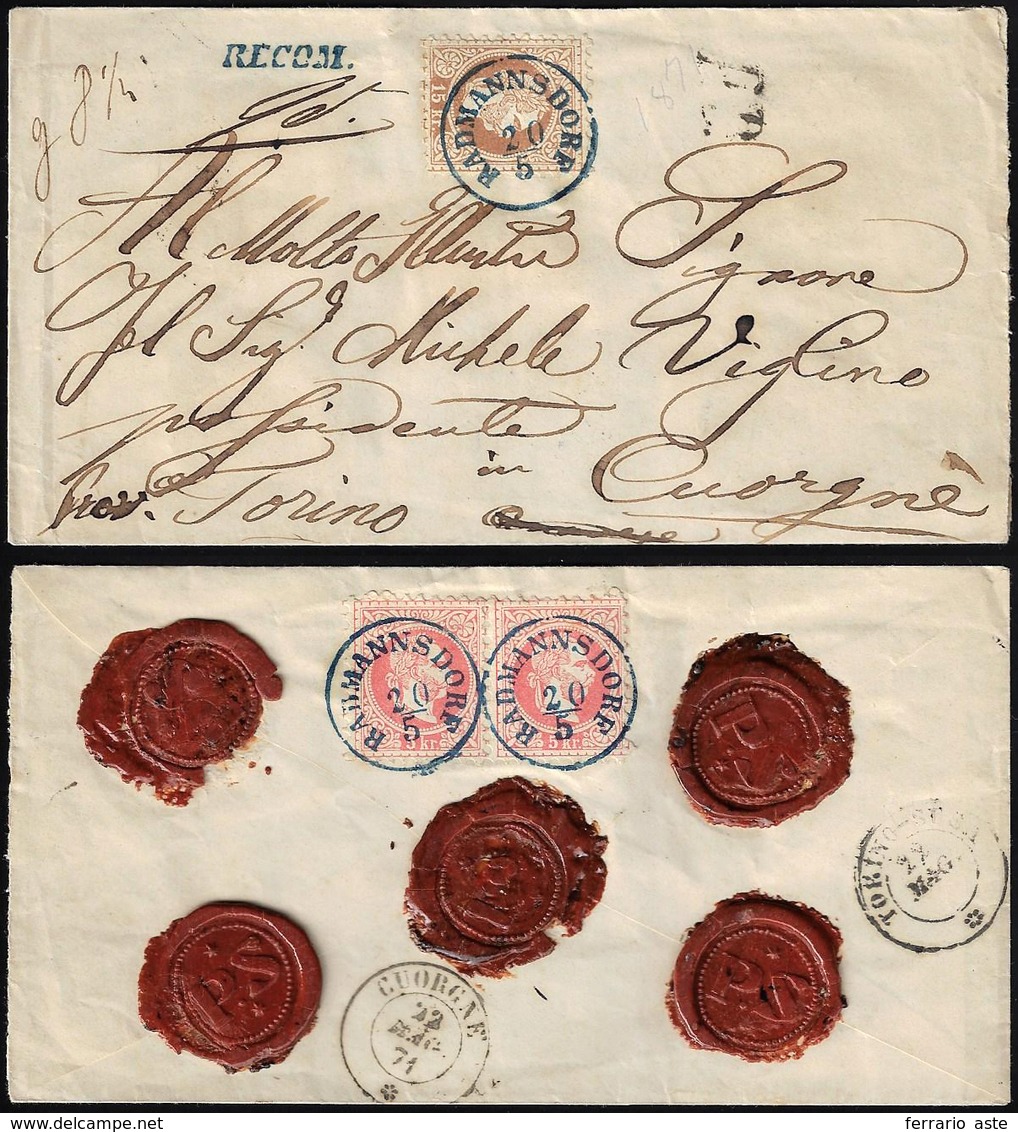 RECOM.
15 Kr.
RADMANNSDORF
20
5
g 8 1/2
187
Al Molto Illustre Signore
Il Sig.r Michele Viglino
possidente
in Cuorgnè
Prov. Torino
5 Kr. 5 Kr.
RADMANNSDORF
20
5
RADMANNSDORF
20
5
TORINO
22
MAG
CUORGNE
22
MAG
71
P S
ferrario aste